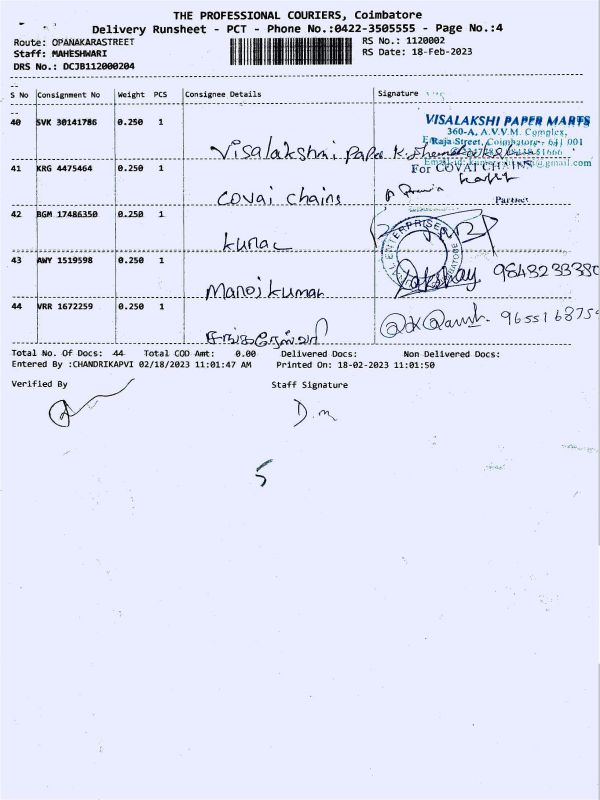 THE PROFESSIONAL COURIERS, Coimbatore
Delivery Runsheet - PCT - Phone No.:0422-3505555 - Page No.:4
Route: OPANAKARASTREET
RS No.: 1120002
Staff: MAHESHWARI
RS Date: 18-Feb-2023
DRS No.: DCJB112000204
S No Consignment No Weight PCS Consignee Details Signature
40 SVK 30141786 0.250 1
VISALAKSHI PAPER MARTS
360-A, A.V.V.M. Complex,
Raja Street, Coimbatore - 641 001
Visalakshi Papa
41 KRG 4475464 0.250 1
For COVAI CHAINS
Covai Chains
Partner
42 BGM 17486350 0.250 1
Kumar
43 AWY 1519598 0.250 1
Manoj Kumar
9843233380
44 VRR 1672259 0.250 1
Total No. Of Docs: 44 Total COD Amt: 0.00 Delivered Docs: Non Delivered Docs:
Entered By :CHANDRIKAPVI 02/18/2023 11:01:47 AM Printed On: 18-02-2023 11:01:50
Verified By Staff Signature
D.m
5